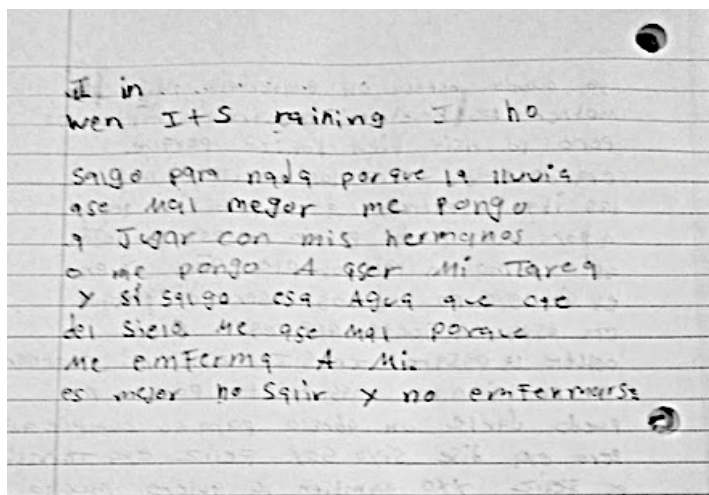 I in
wen I+S raining I no
salgo para nada porque la lluvia
ase mal megor me pongo
a Jugar con mis hermanos
o me pongo A aser Mi Tarea
y si salgo esa Agua que cae
del sielo Me ase mal porque
Me emferma A Mi.
es mejor no Salir y no emfermarse